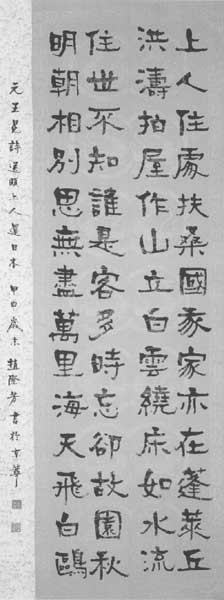 上人住處扶桑國我家亦在蓬萊丘
洪濤拍屋作山立白雲繞床如水流
住世不知誰是客多時忘卻故園秋
明朝相別思無盡萬里海天飛白鷗
元王冕詩送頤上人還日本 甲申歲末 趙隆芳書於京華